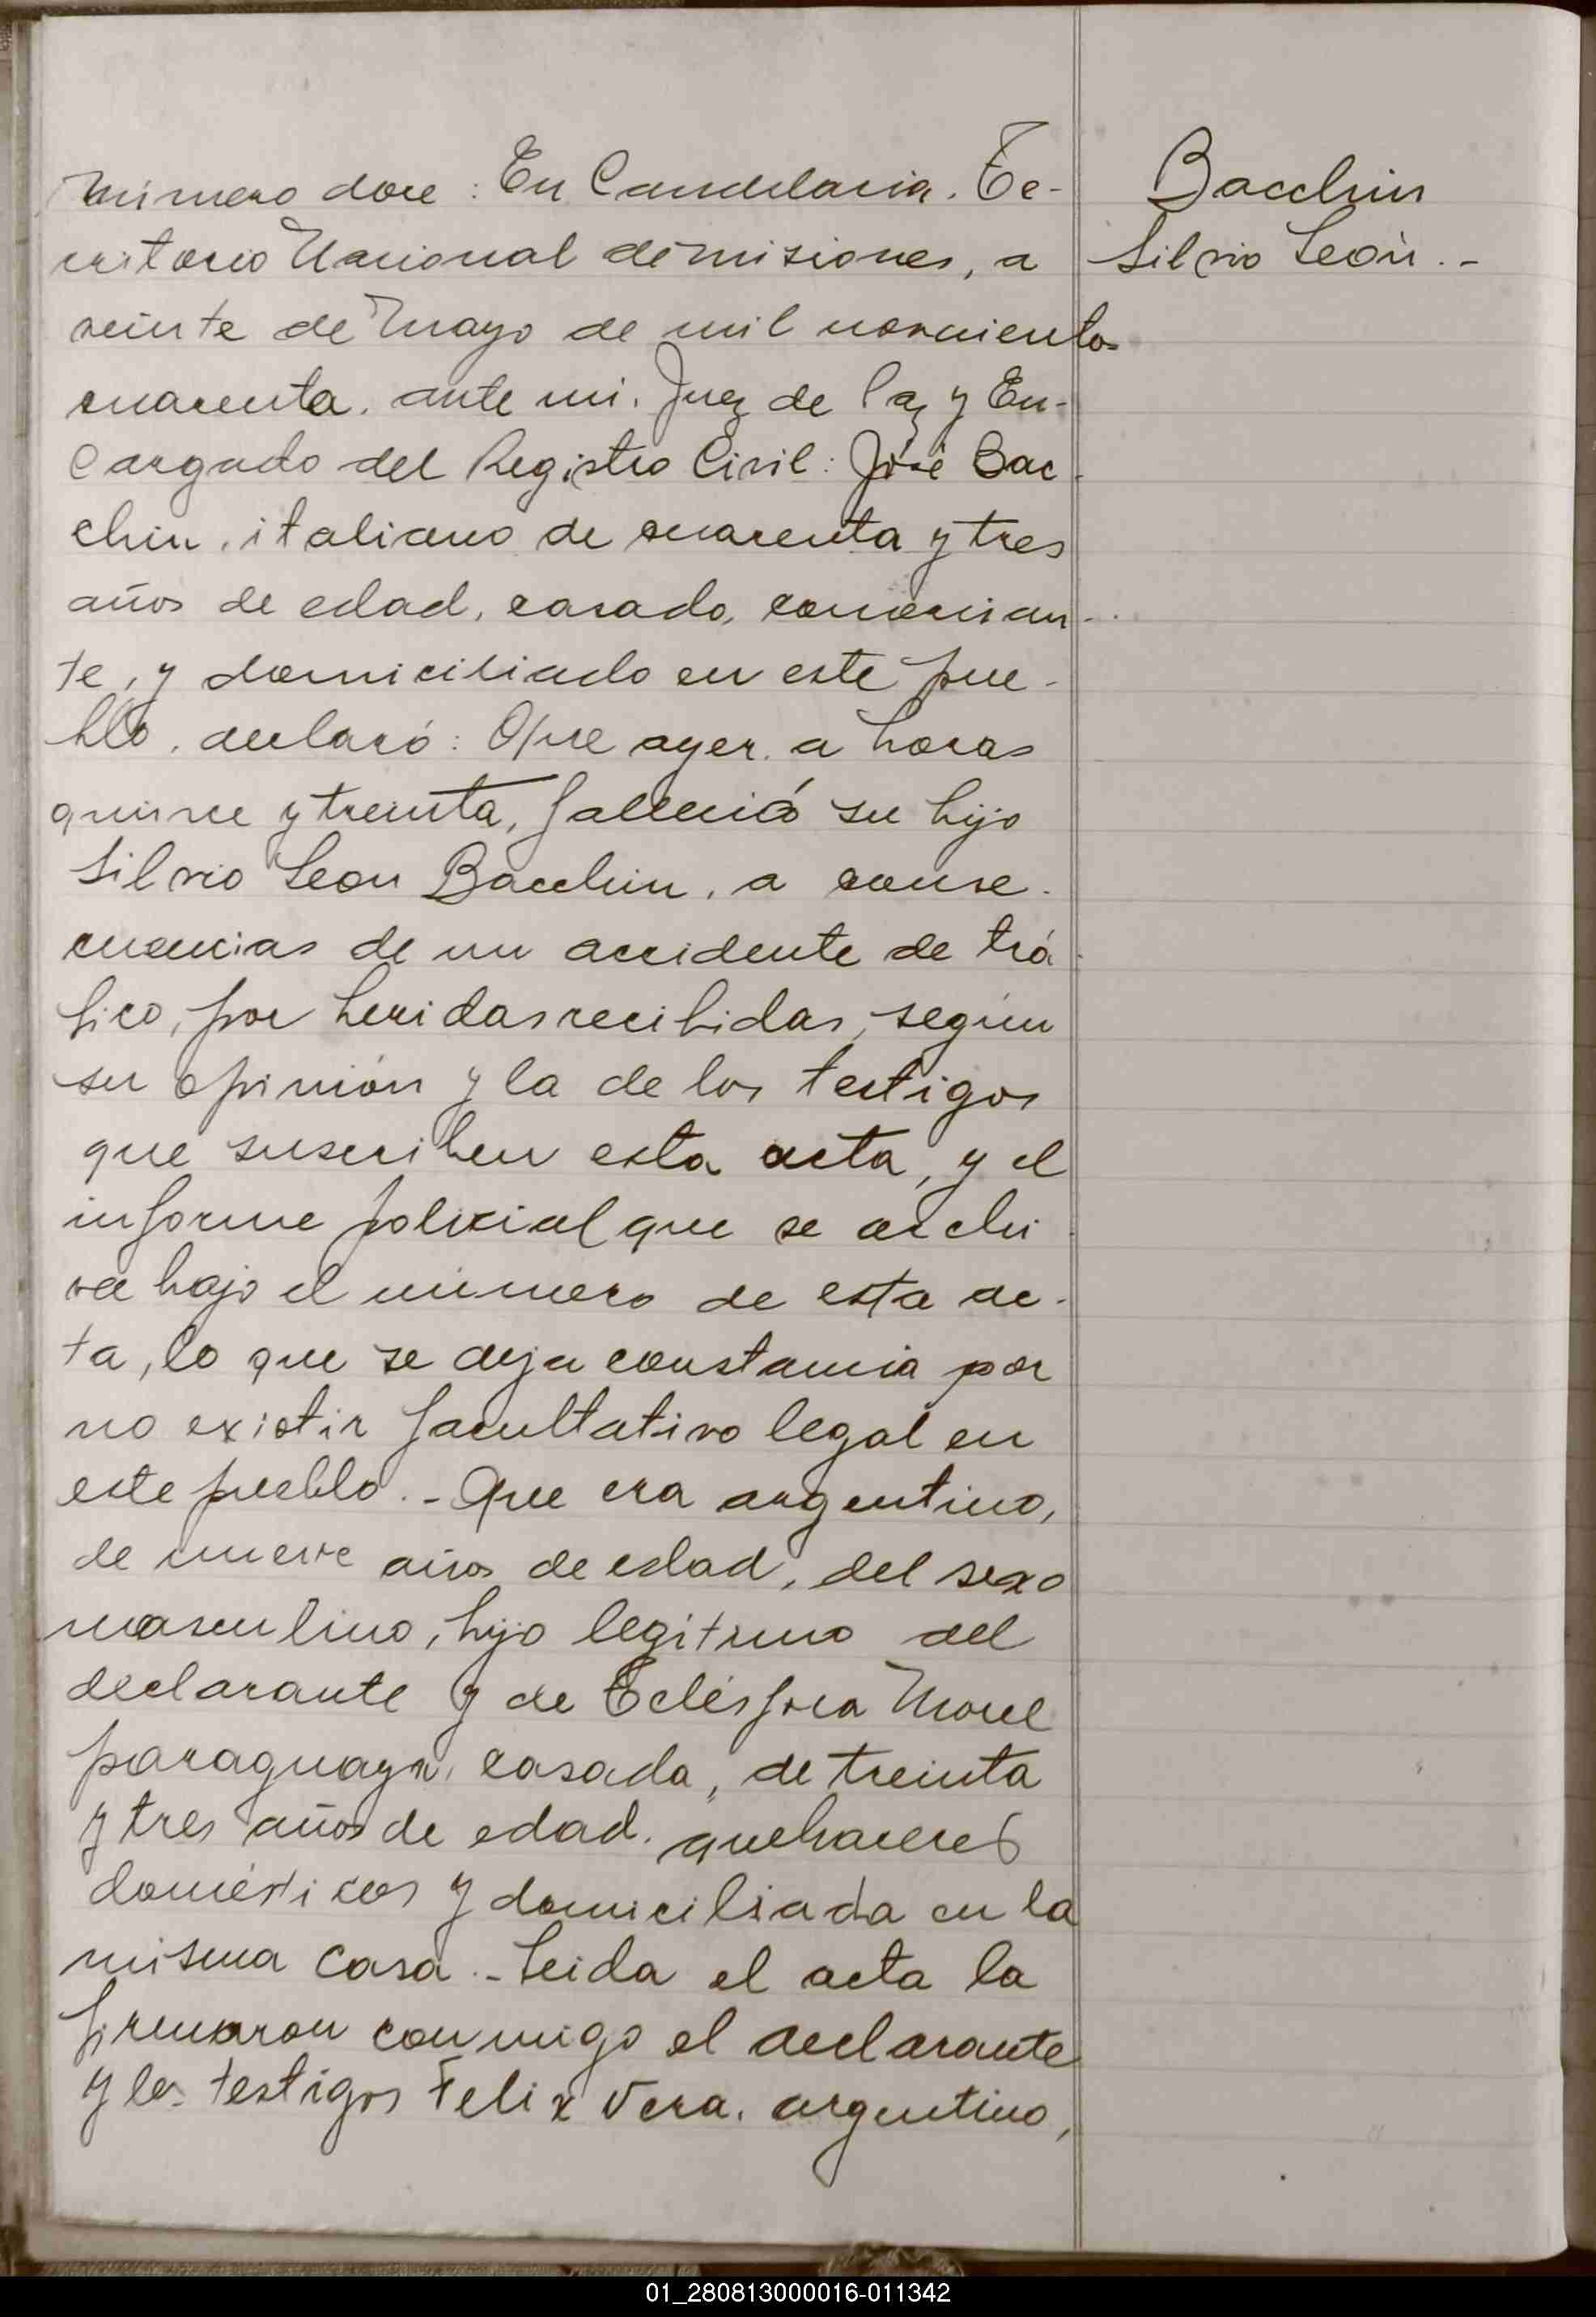 Número doce: En Candelaria. Te-
rritorio Nacional de Misiones, a
veinte de Mayo de mil novecientos
cuarenta. ante mi. Juez de Paz y En-
cargado del Registro Civil: José Bac-
chin, italiano de cuarenta y tres
años de edad, casado, comercian-
te, y domiciliado en este pue-
blo, declaró: Que ayer. a horas
quince y treinta, falleció su hijo
Silvio Leon Bacchin, a conse-
cuencias de un accidente de trá-
fico, por heridas recibidas, según
su opinión y la de los testigos
que suscriben esta acta, y el
informe policial que se archi-
va bajo el número de esta ac-
ta, lo que se deja constancia por
no existir facultativo legal en
este pueblo.- Que era argentino,
de nueve años de edad, del sexo
masculino, hijo legítimo del
declarante y de Telésfora Morel
paraguaya, casada, de treinta
y tres años de edad. quehaceres
domésticos y domiciliada en la
misma casa.- Leida el acta la
firmaron conmigo el declarante
y los testigos Felix Vera. argentino,
Bacchin
Silvio León.-
01_280813000016-011342